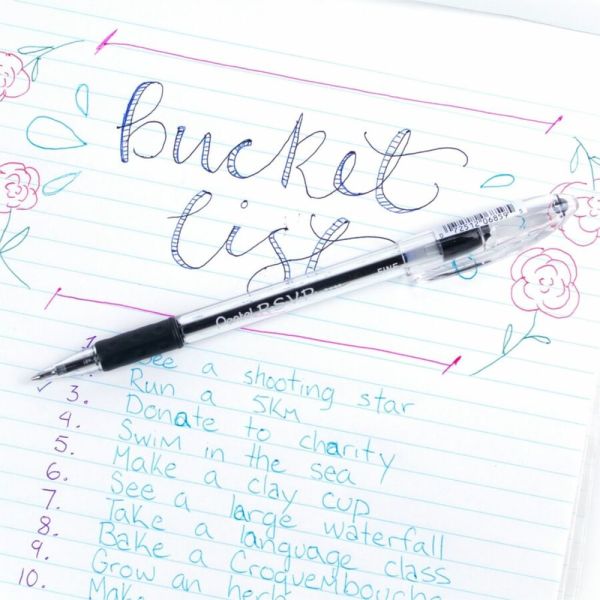 bucket
list
72512 06859
Pentel R.S.V.P. FINE
1. See a shooting star
Run a 5Km
✓ 3. Donate to charity
4. Swim in the sea
5. Make a clay cup
6. See a large waterfall
7. Take a language class
8. Bake a Croquembouche
9. Grow an herb
10. Make